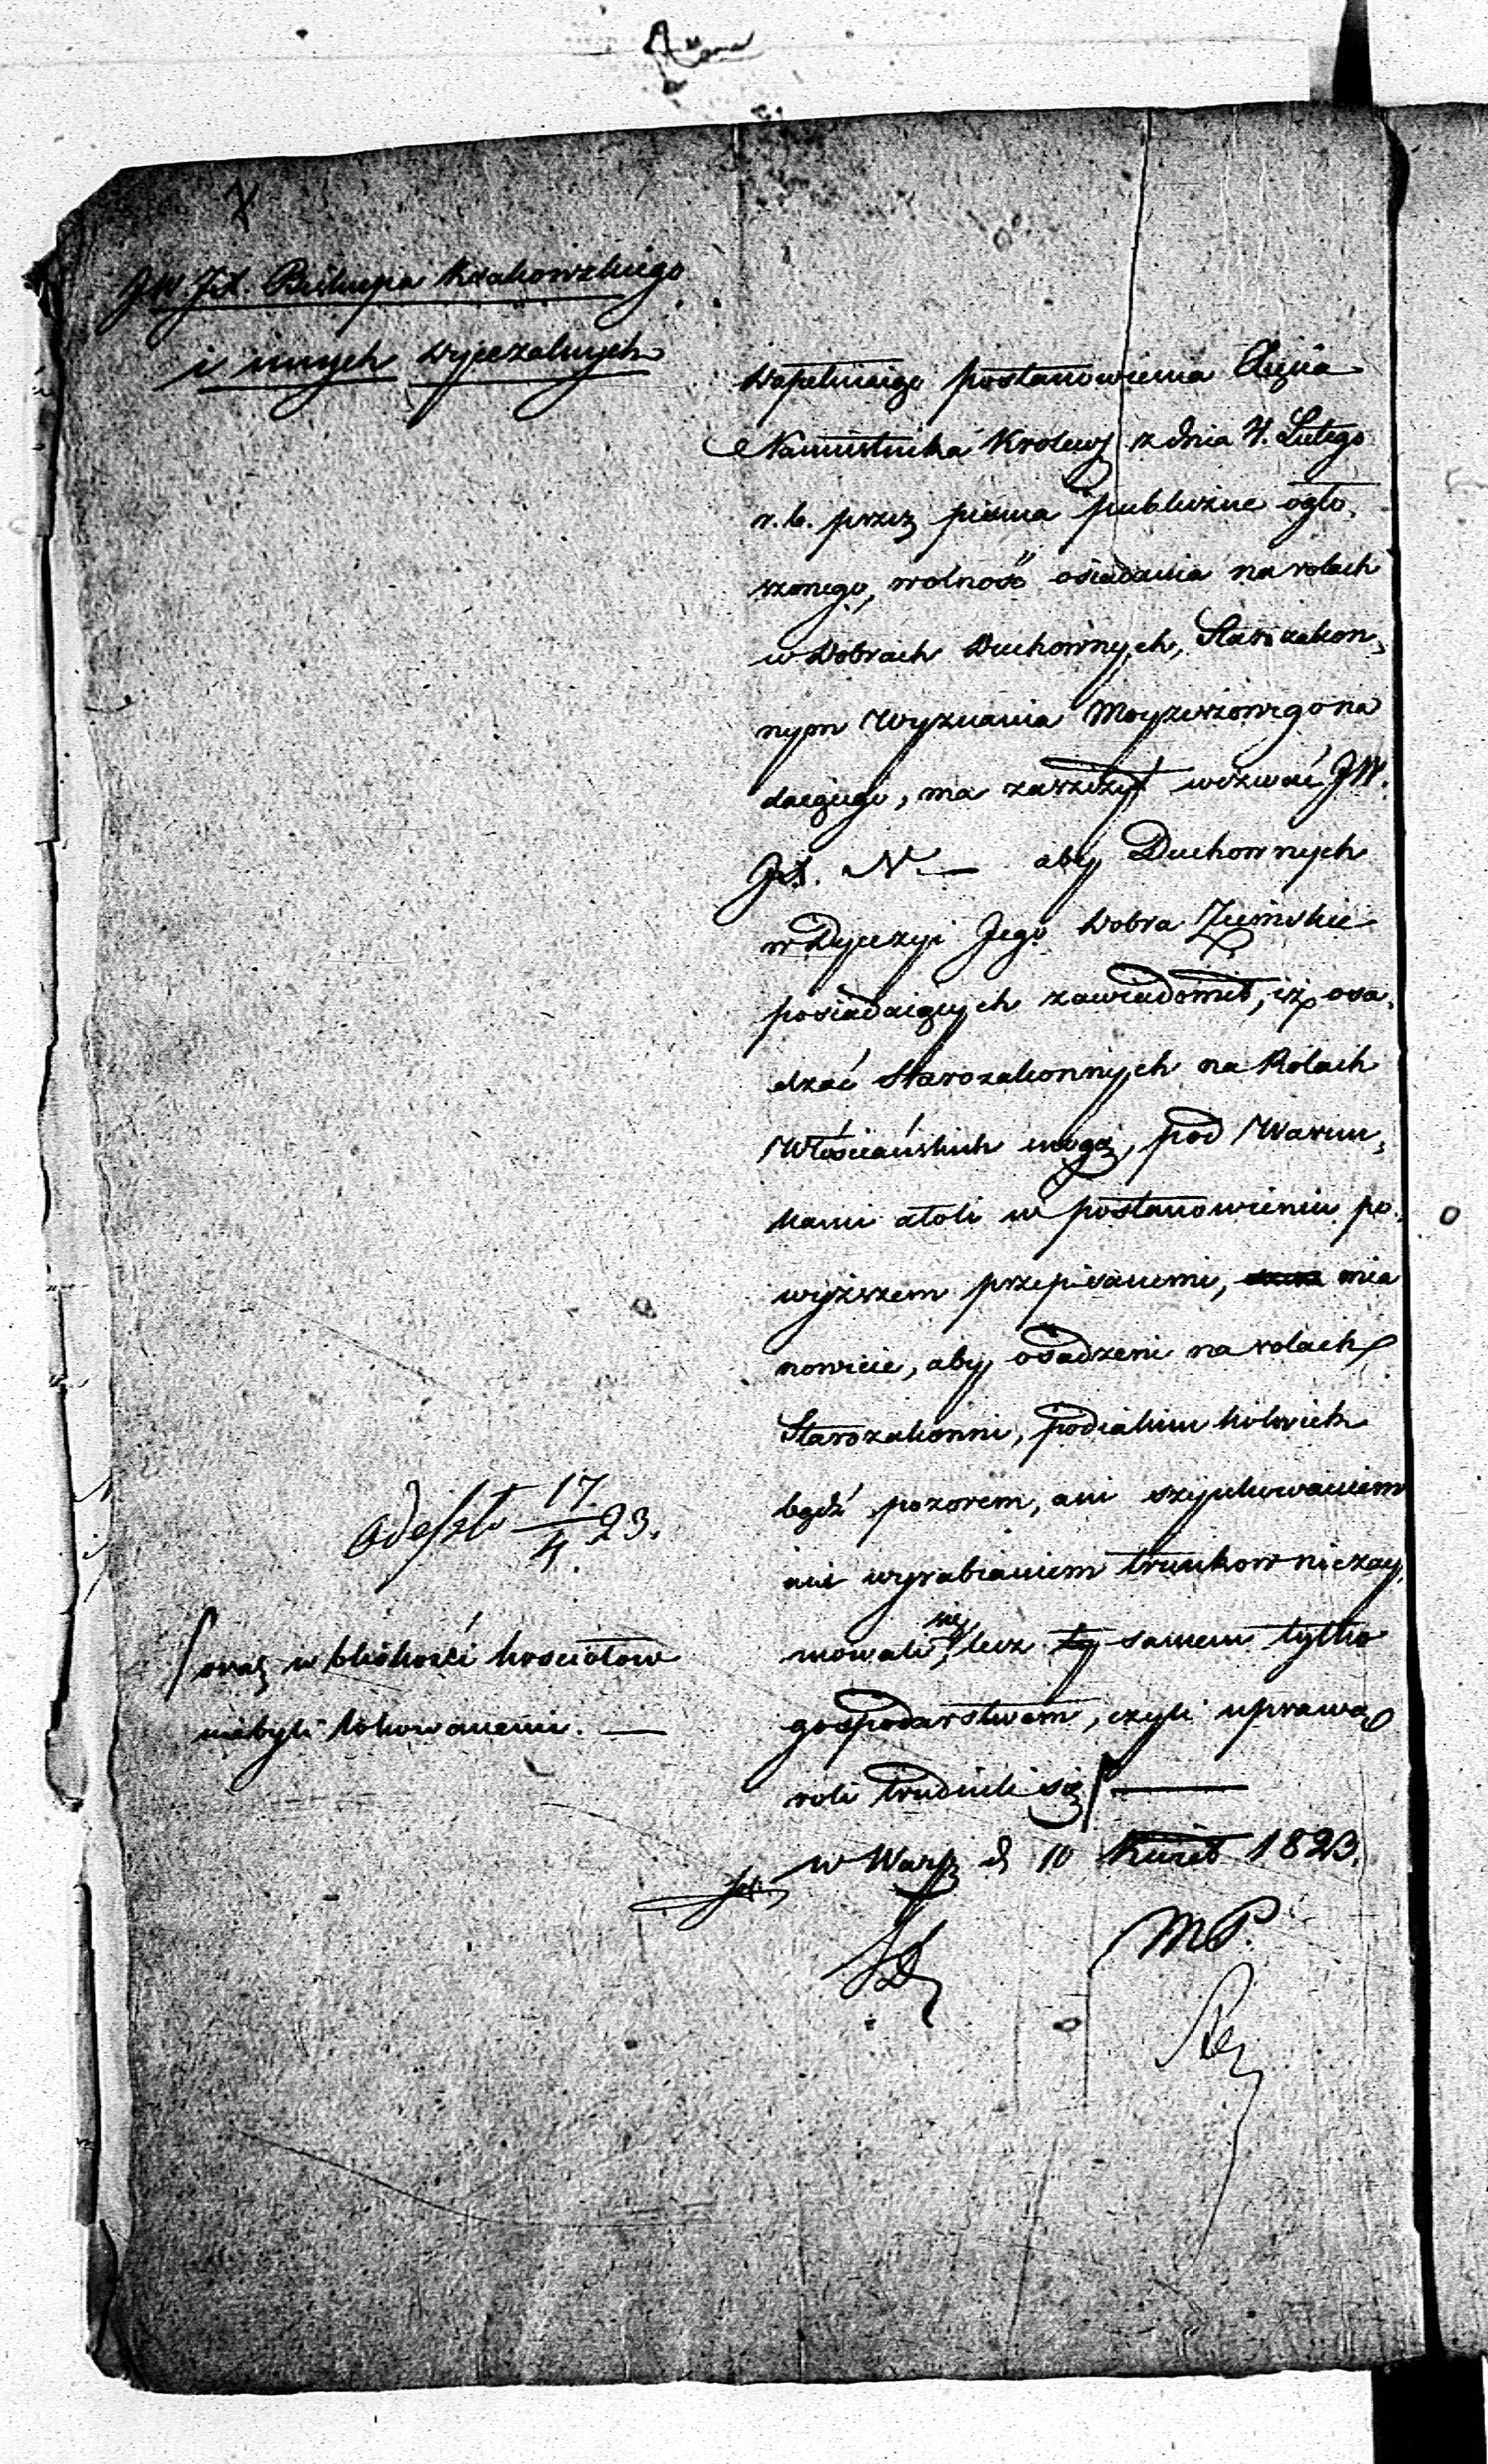 JW JX. Biskupa Krakowskiego
i innych Dyecezalnych
W dopełnieniu postanowienia Xięcia
Namiestnika Krolews z dnia 4. Lutego
r. b. przez pisma publiczne ogło,
szonego, wolność osiadania na rolach
w Dobrach Duchownych, Starozakon,
nym Wyznania Moyzeszowego na
daiącego, ma zaszczyt wezwać JW.
JX. N. — aby Duchownych
w Dyecezyi Jego Dobra Ziemskie
posiadaiących zawiadomił, iż osa,
dzać Starozakonnych na Rolach
Włościańskich mogą, pod Warun,
kami atoli w postanowieniu po,
wyższem przepisanemi, mia
nowicie, aby osadzeni na rolach
Starozakonni, pod iakim kolwiek
bądź pozorem, ani szynkowaniem
ani wyrabianiem trunkow niezay,
mowali się, lecz samem tylko
gospodarstwem, czyli uprawą
roli trudnili się
w Warsz d 10 Kwiet 1823.
MP.
Odeszło 17/4 23.
oraz w bliskości kościołow
niebyli lokowanemi. —